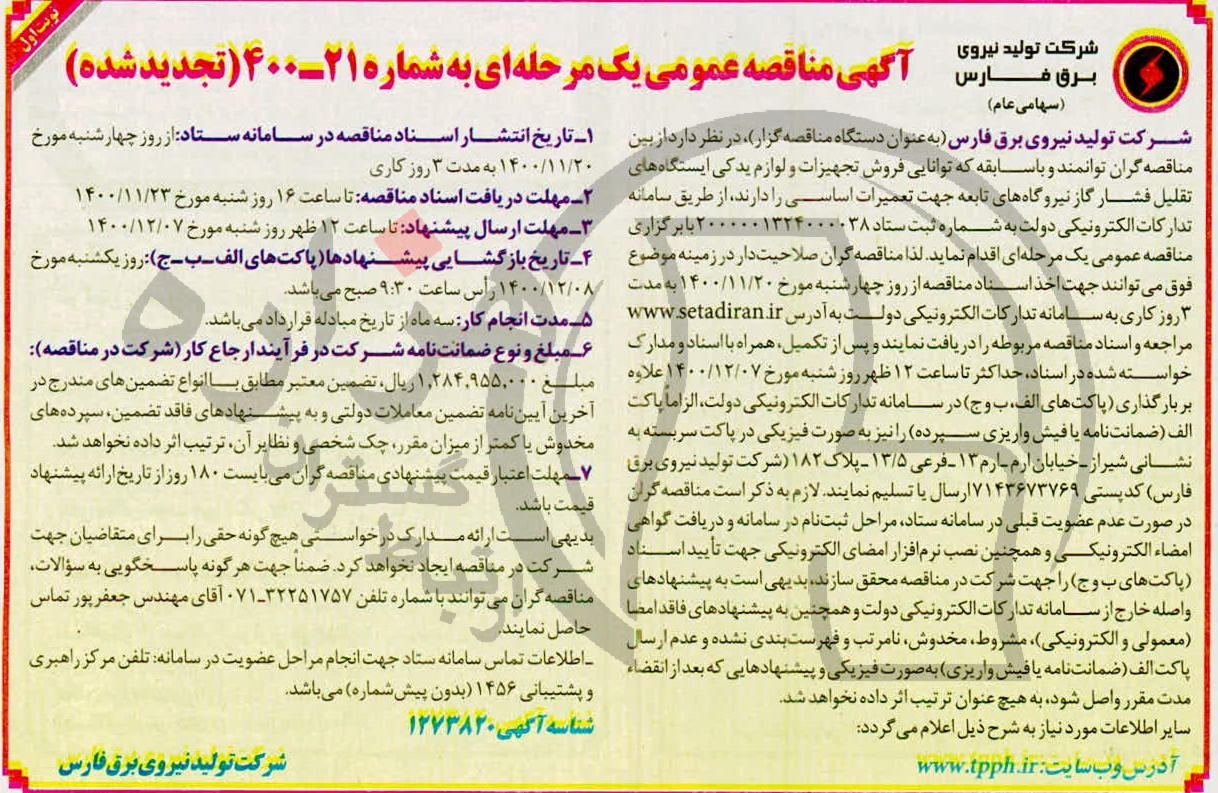 نوبت اول
شرکت تولید نیروی
برق فارس
(سهامی عام)
آگهی مناقصه عمومی یک مرحله‌ای به شماره ۲۱ـ۴۰۰ (تجدید شده)
شرکت تولید نیروی برق فارس (به عنوان دستگاه مناقصه گزار)، در نظر دارد از بین
مناقصه گران توانمند و باسابقه که توانایی فروش تجهیزات و لوازم یدکی ایستگاه‌های
تقلیل فشار گاز نیروگاه‌های تابعه جهت تعمیرات اساسی را دارند، از طریق سامانه
تدارکات الکترونیکی دولت به شماره ثبت ستاد ۲۰۰۰۰۰۰۱۳۲۴۰۰۰۰۳۸ با برگزاری
مناقصه عمومی یک مرحله‌ای اقدام نماید. لذا مناقصه گران صلاحیت‌دار در زمینه موضوع
فوق می‌توانند جهت اخذ اسناد مناقصه از روز چهارشنبه مورخ ۱۴۰۰/۱۱/۲۰ به مدت
۳ روز کاری به سامانه تدارکات الکترونیکی دولت به آدرس www.setadiran.ir
مراجعه و اسناد مناقصه مربوطه را دریافت نمایند و پس از تکمیل، همراه با اسناد و مدارک
خواسته شده در اسناد، حداکثر تا ساعت ۱۲ ظهر روز شنبه مورخ ۱۴۰۰/۱۲/۰۷ علاوه
بر بارگذاری (پاکت‌های الف، ب و ج) در سامانه تدارکات الکترونیکی دولت، الزاماً پاکت
الف (ضمانت‌نامه یا فیش واریزی سپرده) را نیز به صورت فیزیکی در پاکت سربسته به
نشانی شیراز ـ خیابان ارم ـ ارم ۱۳ ـ فرعی ۱۳/۵ ـ پلاک ۱۸۲ (شرکت تولید نیروی برق
فارس) کدپستی ۷۱۴۳۶۷۳۷۶۹ ارسال یا تسلیم نمایند. لازم به ذکر است مناقصه گران
در صورت عدم عضویت قبلی در سامانه ستاد، مراحل ثبت‌نام در سامانه و دریافت گواهی
امضاء الکترونیکی و همچنین نصب نرم‌افزار امضای الکترونیکی جهت تأیید اسناد
(پاکت‌های ب و ج) را جهت شرکت در مناقصه محقق سازند، بدیهی است به پیشنهادهای
واصله خارج از سامانه تدارکات الکترونیکی دولت و همچنین به پیشنهادهای فاقد امضا
(معمولی و الکترونیکی)، مشروط، مخدوش، نامرتب و فهرست‌بندی نشده و عدم ارسال
پاکت الف (ضمانت‌نامه یا فیش واریزی) به‌صورت فیزیکی و پیشنهادهایی که بعد از انقضاء
مدت مقرر واصل شود، به هیچ عنوان ترتیب اثر داده نخواهد شد.
سایر اطلاعات مورد نیاز به شرح ذیل اعلام می‌گردد:
۱ـ تاریخ انتشار اسناد مناقصه در سامانه ستاد: از روز چهارشنبه مورخ
۱۴۰۰/۱۱/۲۰ به مدت ۳ روز کاری
۲ـ مهلت دریافت اسناد مناقصه: تا ساعت ۱۶ روز شنبه مورخ ۱۴۰۰/۱۱/۲۳
۳ـ مهلت ارسال پیشنهاد: تا ساعت ۱۲ ظهر روز شنبه مورخ ۱۴۰۰/۱۲/۰۷
۴ـ تاریخ بازگشایی پیشنهادها (پاکت‌های الف ـ ب ـ ج): روز یکشنبه مورخ
۱۴۰۰/۱۲/۰۸ رأس ساعت ۹:۳۰ صبح می‌باشد.
۵ـ مدت انجام کار: سه ماه از تاریخ مبادله قرارداد می‌باشد.
۶ـ مبلغ و نوع ضمانت‌نامه شرکت در فرآیند ارجاع کار (شرکت در مناقصه):
مبلغ ۱,۲۸۴,۹۵۵,۰۰۰ ریال، تضمین معتبر مطابق با انواع تضمین‌های مندرج در
آخرین آیین‌نامه تضمین معاملات دولتی و به پیشنهادهای فاقد تضمین، سپرده‌های
مخدوش یا کمتر از میزان مقرر، چک شخصی و نظایر آن، ترتیب اثر داده نخواهد شد.
۷ـ مهلت اعتبار قیمت پیشنهادی مناقصه گران می‌بایست ۱۸۰ روز از تاریخ ارائه پیشنهاد
قیمت باشد.
بدیهی است ارائه مدارک درخواستی هیچ گونه حقی را برای متقاضیان جهت
شرکت در مناقصه ایجاد نخواهد کرد. ضمناً جهت هر گونه پاسخگویی به سؤالات،
مناقصه گران می‌توانند با شماره تلفن ۳۲۲۵۱۷۵۷ـ۰۷۱ آقای مهندس جعفرپور تماس
حاصل نمایند.
ـ اطلاعات تماس سامانه ستاد جهت انجام مراحل عضویت در سامانه: تلفن مرکز راهبری
و پشتیبانی ۱۴۵۶ (بدون پیش‌شماره) می‌باشد.
شناسه آگهی: ۱۲۷۳۸۲۰
آدرس وب سایت: www.tpph.ir
شرکت تولید نیروی برق فارس